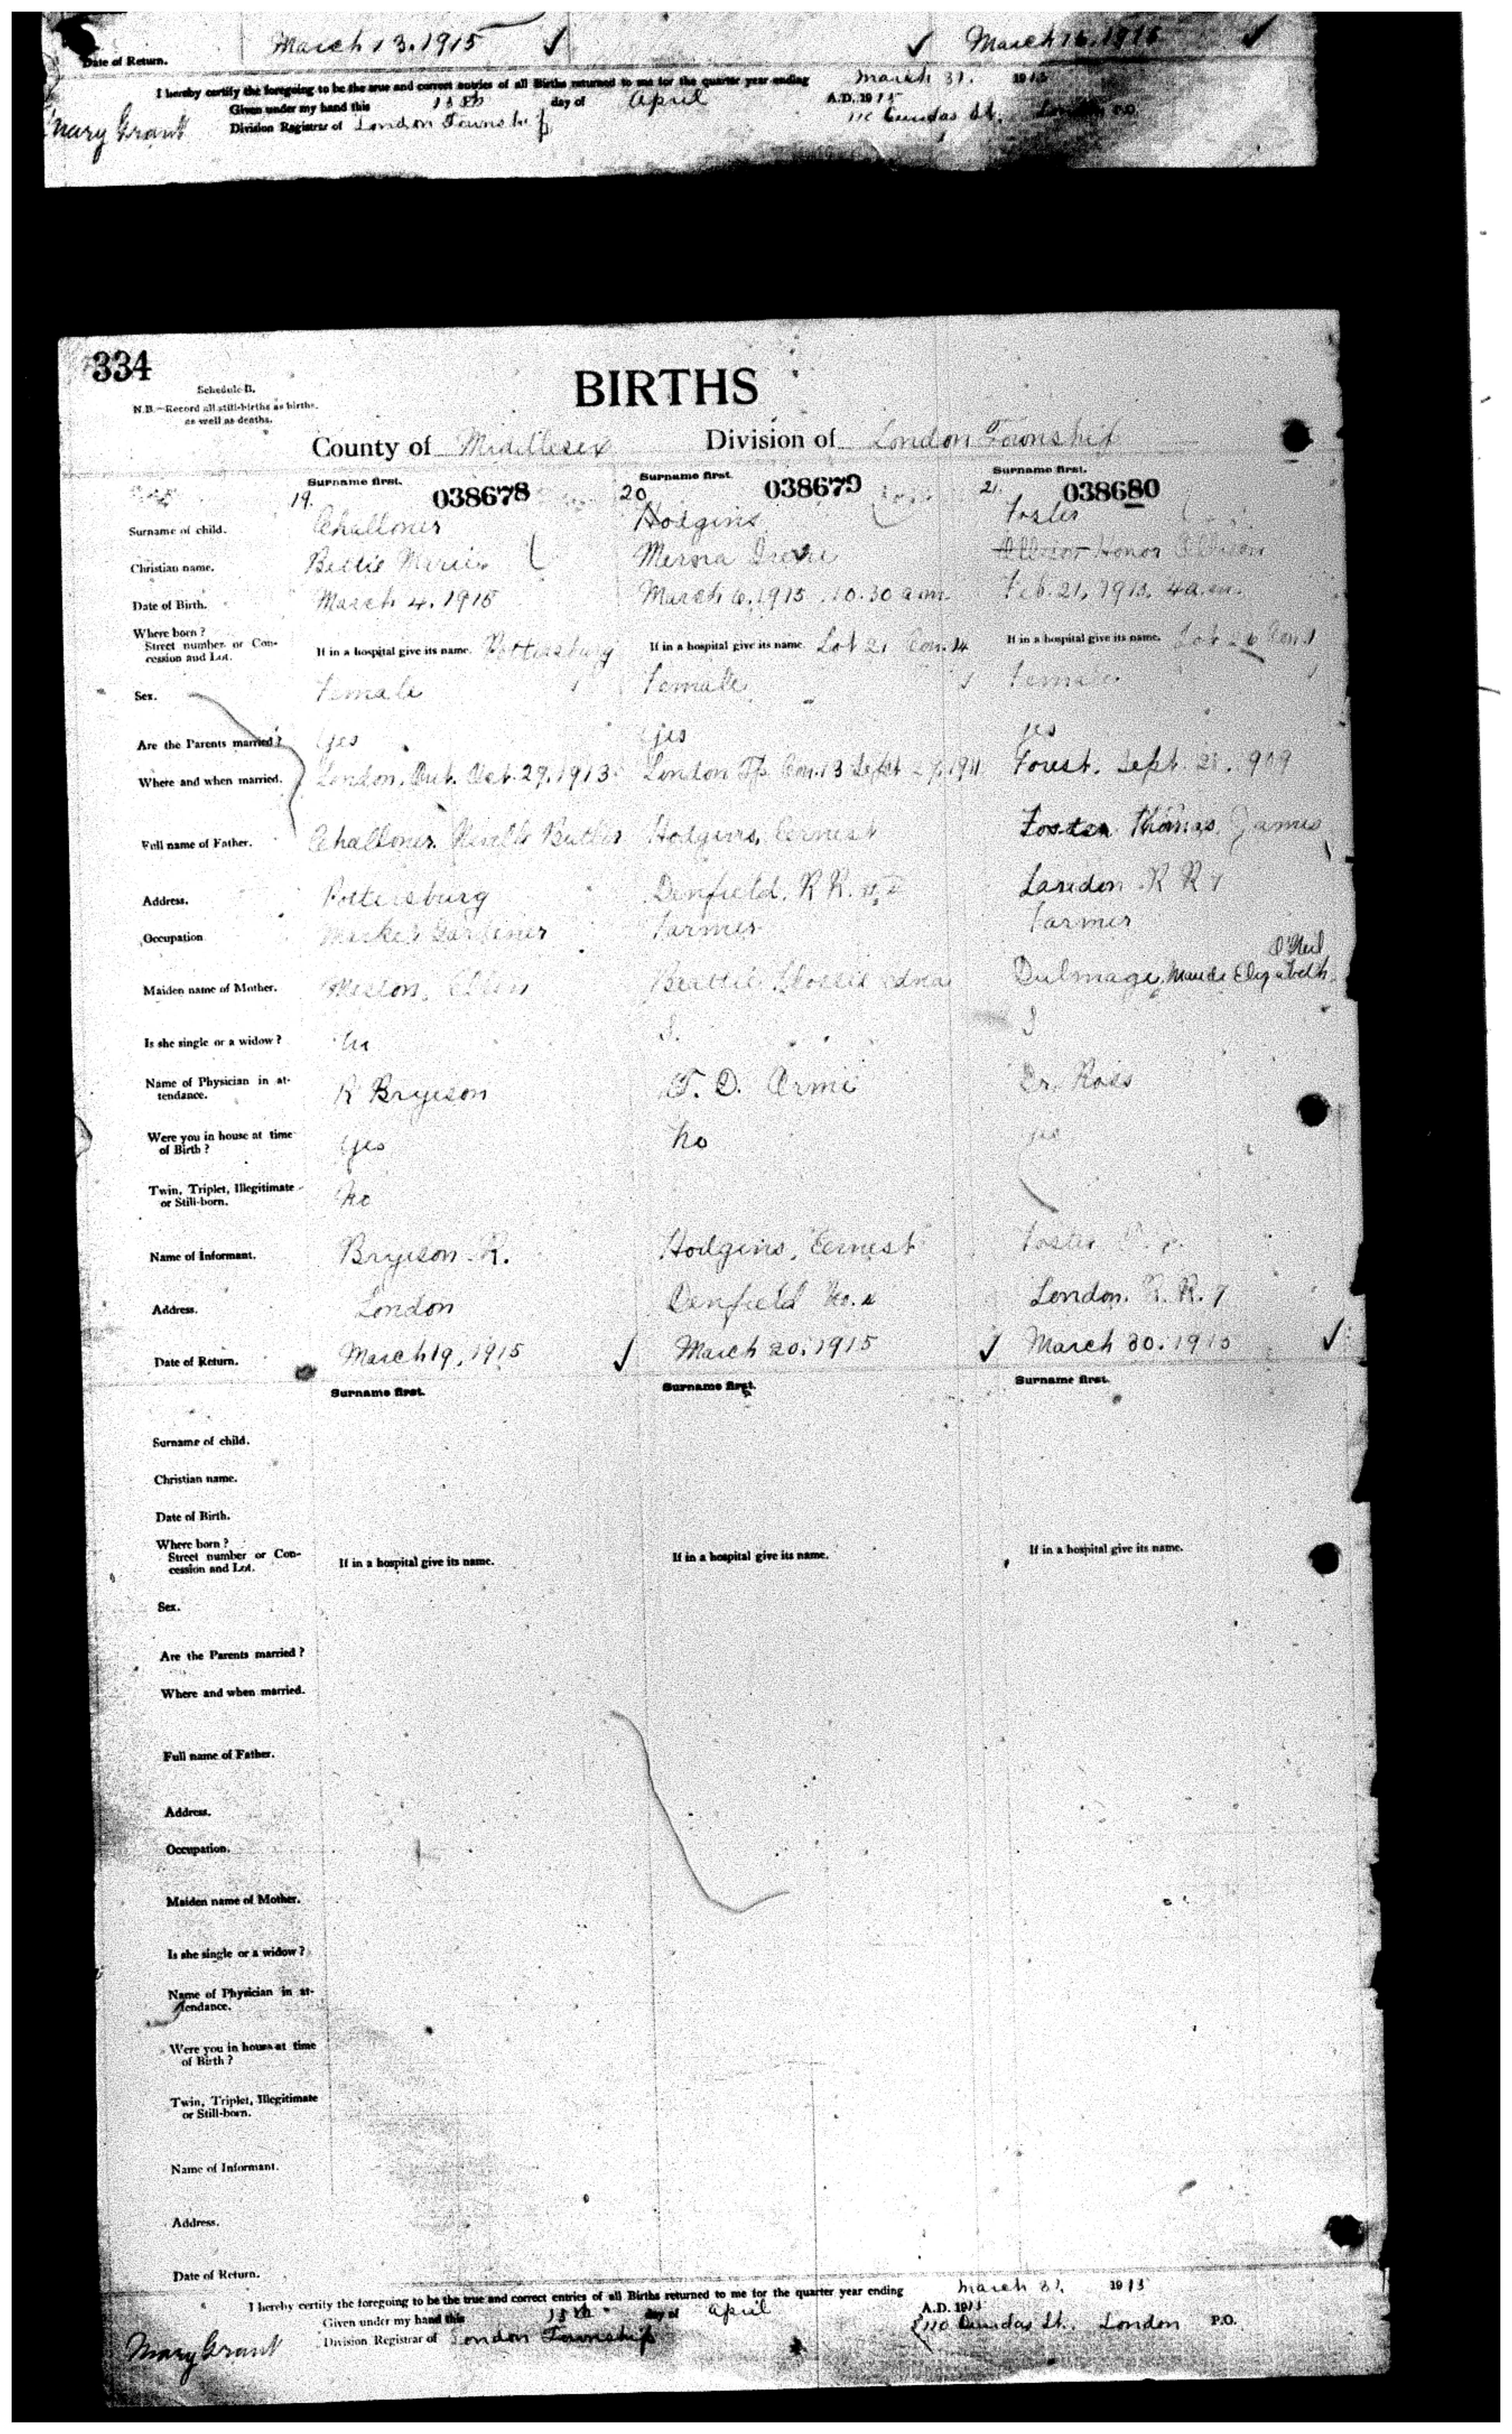 March 13. 1915 March 16. 1915
Date of Return.
I hereby certify the foregoing to be the true and correct entries of all Births returned to me for the quarter year ending March 31. 1915
Given under my hand this 15th day of April A.D. 1915
Mary Grant Division Registrar of London Township 110 Dundas St. London P.O.
334
Schedule B.
N.B.—Record all still-births as births,
as well as deaths.
BIRTHS
County of Middlesex Division of London Township
Surname first. Surname first. Surname first.
19. 038678 20 038679 21. 038680
Surname of child. Challoner Hodgins Foster
Christian name. Bettie Merna Honor
Date of Birth. March 4. 1915 March 6. 1915 10.30 a.m. Feb. 21, 1915. 4 a.m.
Where born?
Street number or Con-
cession and Lot.
If in a hospital give its name. Pottersburg If in a hospital give its name Lot 21 Con. 14 If in a hospital give its name. Lot 26 Con. 1
Sex. Female Female Female
Are the Parents married? Yes Yes yes
Where and when married. London, Ont. Oct. 29. 1913 London Tp. Con. 13 Sept 27. 1911 Forest. Sept. 1909
Full name of Father. Challoner Butler Hodgins, Ernest Foster Thomas James
Address. Pottersburg Denfield. R R. London R R 7
Occupation Market Gardener Farmer Farmer
O'Neil
Maiden name of Mother. Ellen Beattie Edna Dulmage, Maude Elizabeth
Is she single or a widow? S. S
Name of Physician in at-
tendance. R Bryeson T. D. Dr. Ross
Were you in house at time
of Birth? Yes No yes
Twin, Triplet, Illegitimate
or Still-born. No
Name of Informant. Bryeson R. Hodgins, Ernest Foster
Address. London Denfield London. R. R. 7
Date of Return. March 19, 1915 March 20. 1915 March 30. 1915
Surname first. Surname first. Surname first.
Surname of child.
Christian name.
Date of Birth.
Where born?
Street number or Con-
cession and Lot.
If in a hospital give its name. If in a hospital give its name. If in a hospital give its name.
Sex.
Are the Parents married?
Where and when married.
Full name of Father.
Address.
Occupation.
Maiden name of Mother.
Is she single or a widow?
Name of Physician in at-
tendance.
Were you in house at time
of Birth?
Twin, Triplet, Illegitimate
or Still-born.
Name of Informant.
Address.
Date of Return.
I hereby certify the foregoing to be the true and correct entries of all Births returned to me for the quarter year ending March 31. 1915
Given under my hand this 15th day of April A.D. 1915
Mary Grant Division Registrar of London Township 110 Dundas St. London P.O.